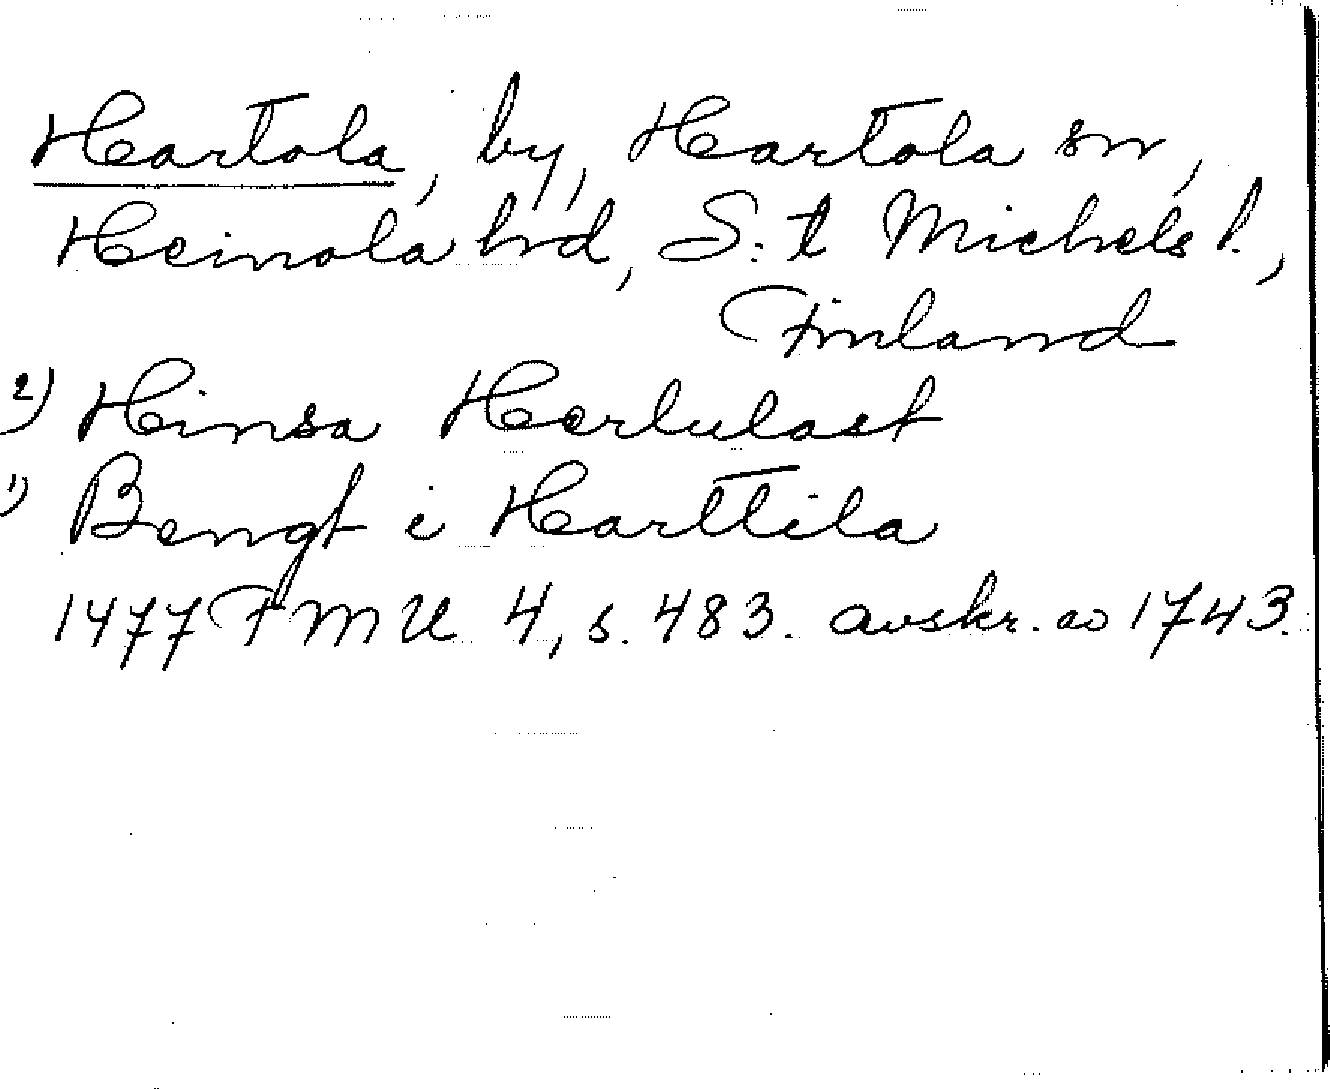 Hartola, by, Hartola sn,
Heinola hrd, S:t Michels l.,
Finland
2) Hinsa Herlulast
1) Bengt i Harttila
1477 FMU 4, s. 483. avskr. av 1743.